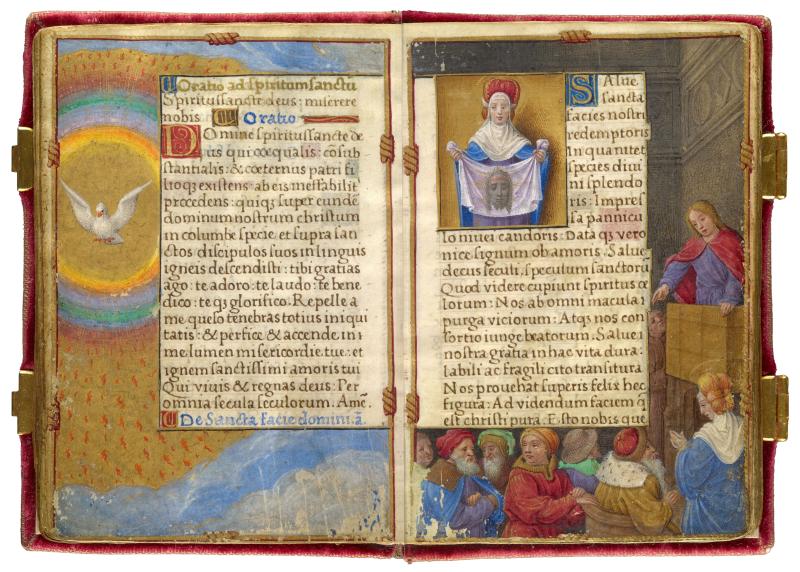 Oratio ad spiritum sanctū
Spiritus sancte deus: miserere
nobis Oratio
Domine spiritus sancte de
us qui coequalis: cōsub
stantialis: & coeternus patri fi
lioq3 existens: ab eis ineffabilit
procedens: quiq3 super eundē
dominum nostrum christum
in columbe specie: et supra san
ctos discipulos suos in linguis
igneis descendisti: tibi gratias
ago: te adoro: te laudo: te bene
dico: te q3 glorifico. Repelle a
me quęso tenebras totius iniqui
tatis: & perfice & accende in
me lumen misericordie tue: et
ignem sanctissimi amoris tui
Qui vivis & regnas deus: Per
omnia secula seculorum. Amē.
De Sancta facie domini. ā.
Salue
sancta
facies nostri
redemptoris
In qua nitet
species divi
ni splendo
ris: Impres
sa pannicu
lo nivei candoris: Data q3 vero
nice signum ob amoris. Salue
decus seculi, speculum sanctorū
Quod videre cupiunt spiritus ce
lorum: Nos ab omni macula
purga viciorum: Atq3 nos con
sortio iunge beatorum. Salue
nostra gratia in hac vita dura:
labili ac fragili cito transitura
Nos provehat superis felix hec
figura: Ad videndum faciem q̄
est christi pura. Esto nobis que